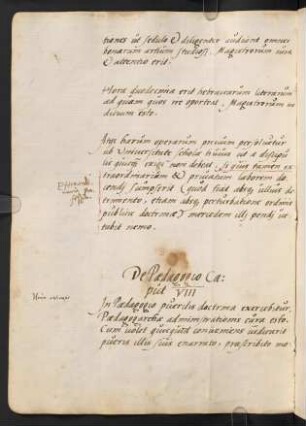 tiones ut sedulo & diligenter audiant omnium
bonarum artium studiosi, Magistrorum cura
& attentio erit.
Hora duodecima erit hebraicarum literarum
ad quam quos ire oporteat, Magistrorum iu
dicium esto.
Atque harum operarum precium persolvatur
ab Universitate Schola huius, ut a discipu
lis quicquam exigi non debeat. Si quis tamen ex
traordinarium & privatum laborem do
cendi sumpserit (quod fiat absque ullius de
trimento, etiam absque perturbatione ordinis
publicæ doctrinæ) mercedem illi pendi ve
tabit nemo.
De Pædagogio Ca:
put VIII
In Pædagogio puerilis doctrina exercebitur,
Pædagogarchæ administratione cura esto.
Cum volet quicquid conveniens iudicarit
pueris illis suis enarrato, præscribito